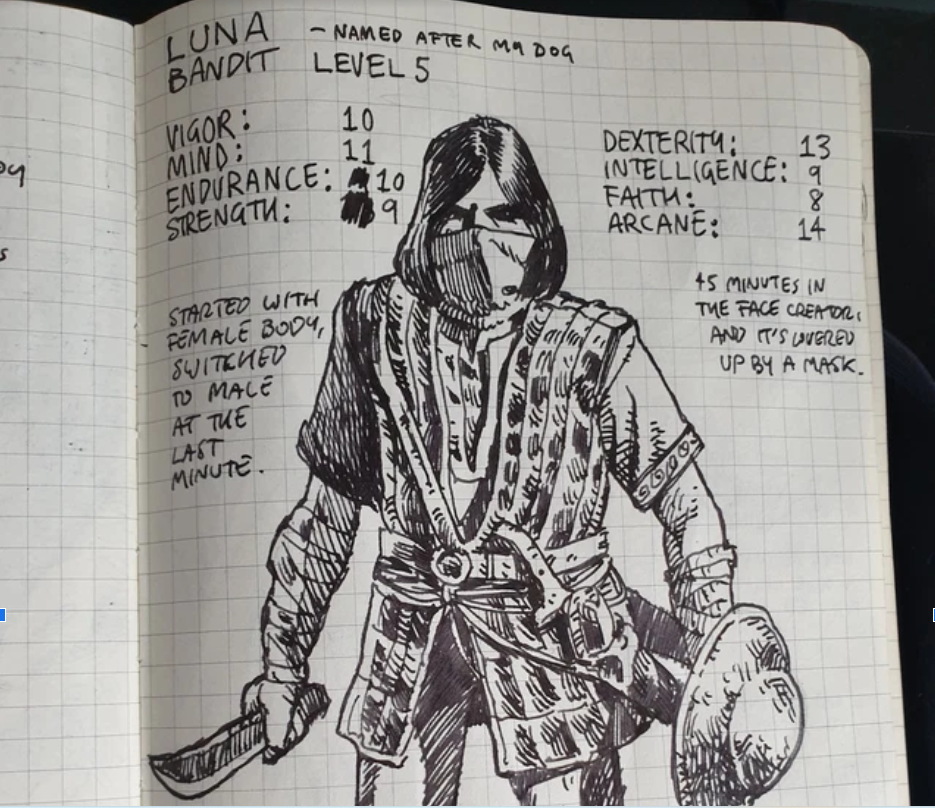 LUNA - NAMED AFTER MY DOG
BANDIT LEVEL 5
VIGOR: 10
MIND: 11
ENDURANCE: 10
STRENGTH: 9
DEXTERITY: 13
INTELLIGENCE: 9
FAITH: 8
ARCANE: 14
STARTED WITH
FEMALE BODY,
SWITCHED
TO MALE
AT THE
LAST
MINUTE.
45 MINUTES IN
THE FACE CREATOR,
AND IT'S COVERED
UP BY A MASK.